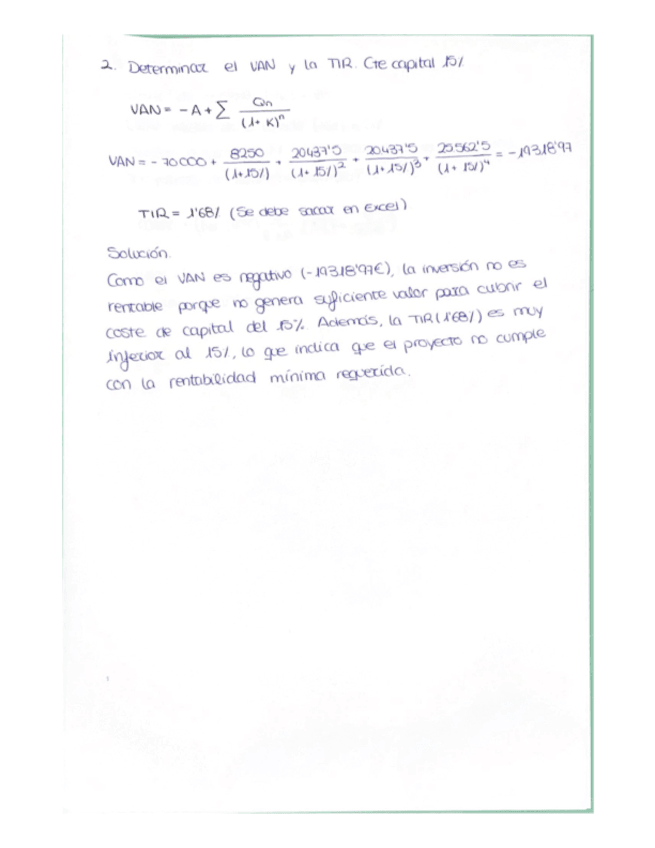 2. Determinar el VAN y la TIR. Cte capital 15%
VAN = - A + ∑ Qn / (1+K)^n
VAN = - 70000 + 8250 / (1+15%) + 20437'5 / (1+15%)^2 + 20437'5 / (1+15%)^3 + 25562'5 / (1+15%)^4 = - 19318'97
TIR = 1'68% (Se debe sacar en Excel)
Solución.
Como el VAN es negativo (-19318'97€), la inversión no es
rentable porque no genera suficiente valor para cubrir el
coste de capital del 15%. Además, la TIR (1'68%) es muy
inferior al 15%, lo que indica que el proyecto no cumple
con la rentabilidad mínima requerida.